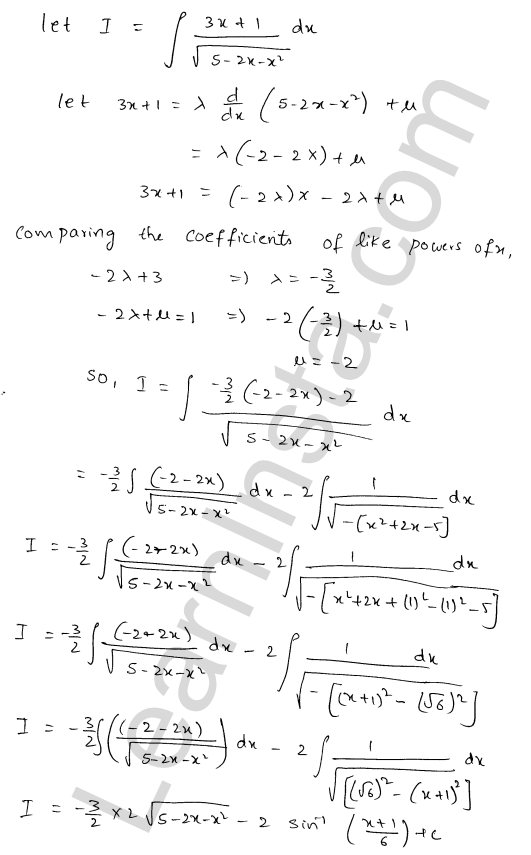 let I = ∫ (3x + 1)/√(5 - 2x - x²) dx
let 3x+1 = λ d/dx (5-2x-x²) + μ
= λ(-2 - 2x) + μ
3x+1 = (-2λ)x - 2λ + μ
Comparing the coefficients of like powers of x,
-2λ+3 ⇒) λ = -3/2
-2λ+μ=1 ⇒) -2(-3/2) + μ = 1
μ = -2
So, I = ∫ (-3/2 (-2-2x) - 2)/√(5-2x-x²) dx
= -3/2 ∫ (-2-2x)/√(5-2x-x²) dx - 2∫ 1/√(-[x²+2x-5]) dx
I = -3/2 ∫ (-2-2x)/√(5-2x-x²) dx - 2∫ 1/√(-[x²+2x+(1)²-(1)²-5]) dx
I = -3/2 ∫ (-2-2x)/√(5-2x-x²) dx - 2∫ 1/√(-[(x+1)² - (√6)²]) dx
I = -3/2 ∫ ((-2-2x)/√(5-2x-x²)) dx - 2∫ 1/√([(√6)² - (x+1)²]) dx
I = -3/2 × 2√(5-2x-x²) - 2 sin⁻¹ ((x+1)/6) + c
LearnInsta.com